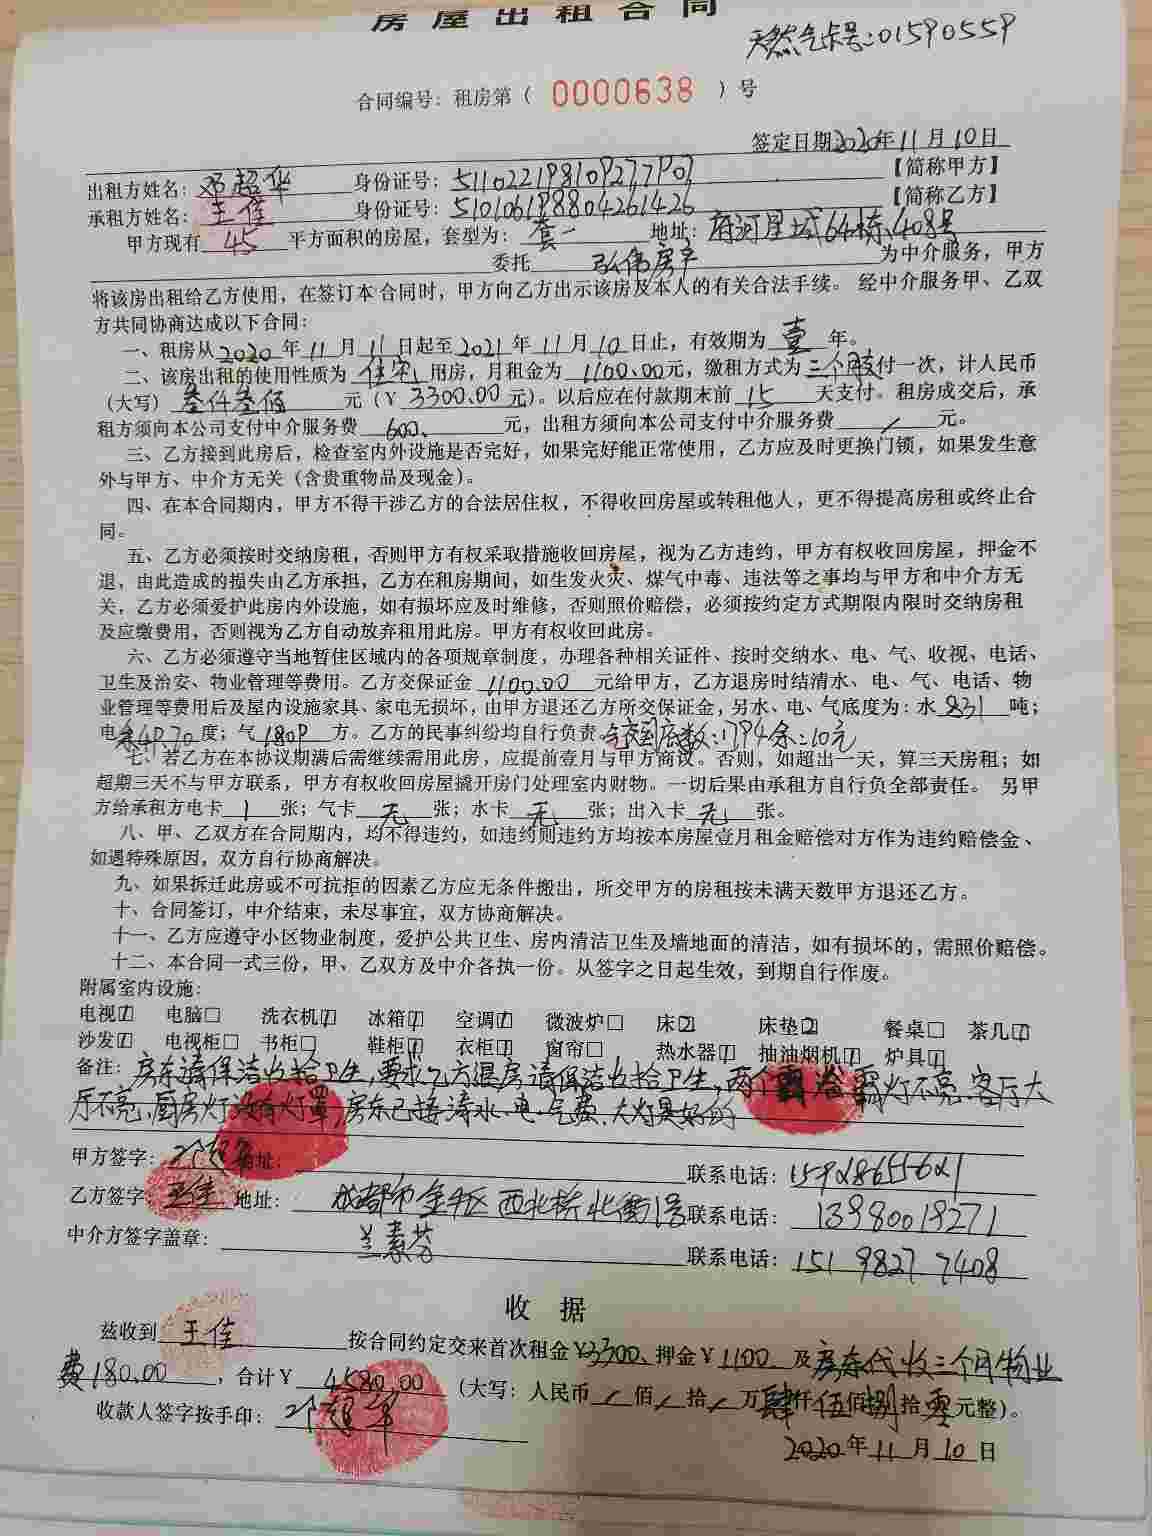 房屋出租合同
天然气卡号:01590559
合同编号：租房第（ 0000638 ）号
签定日期2020年11月10日
出租方姓名：邓超华 身份证号：511022198109277907 【简称甲方】
承租方姓名：王佳 身份证号：510106198804261426 【简称乙方】
甲方现有 45 平方面积的房屋，套型为：套一 地址：府河星城64栋408号
委托 弘伟房产 为中介服务，甲方
将该房出租给乙方使用，在签订本合同时，甲方向乙方出示该房及本人的有关合法手续。经中介服务甲、乙双
方共同协商达成以下合同：
一、租房从2020年11月11日起至2021年11月10日止，有效期为 壹 年。
二、该房出租的使用性质为 住宅 用房，月租金为 1100.00元，缴租方式为三个月支付一次，计人民币
（大写） 叁仟叁佰 元（¥ 3300.00元）。以后应在付款期末前 15 天支付。租房成交后，承
租方须向本公司支付中介服务费 600. 元，出租方须向本公司支付中介服务费 / 元。
三、乙方接到此房后，检查室内外设施是否完好，如果完好能正常使用，乙方应及时更换门锁，如果发生意
外与甲方、中介方无关（含贵重物品及现金）。
四、在本合同期内，甲方不得干涉乙方的合法居住权，不得收回房屋或转租他人，更不得提高房租或终止合
同。
五、乙方必须按时交纳房租，否则甲方有权采取措施收回房屋，视为乙方违约，甲方有权收回房屋，押金不
退，由此造成的损失由乙方承担，乙方在租房期间，如生发火灾、煤气中毒、违法等之事均与甲方和中介方无
关，乙方必须爱护此房内外设施，如有损坏应及时维修，否则照价赔偿，必须按约定方式期限内限时交纳房租
及应缴费用，否则视为乙方自动放弃租用此房。甲方有权收回此房。
六、乙方必须遵守当地暂住区域内的各项规章制度，办理各种相关证件、按时交纳水、电、气、收视、电话、
卫生及治安、物业管理等费用。乙方交保证金 1100.00 元给甲方，乙方退房时结清水、电、气、电话、物
业管理等费用后及屋内设施家具、家电无损坏，由甲方退还乙方所交保证金，另水、电、气底度为：水 831 吨；
电余49.70度；气1809 方。乙方的民事纠纷均自行负责。气表图底数:1794余:10元
七、若乙方在本协议期满后需继续需用此房，应提前壹月与甲方商议。否则，如超出一天，算三天房租；如
超期三天不与甲方联系，甲方有权收回房屋撬开房门处理室内财物。一切后果由承租方自行负全部责任。 另甲
方给承租方电卡 1 张；气卡 无 张；水卡 无 张；出入卡 无 张。
八、甲、乙双方在合同期内，均不得违约，如违约则违约方均按本房屋壹月租金赔偿对方作为违约赔偿金、
如遇特殊原因，双方自行协商解决。
九、如果拆迁此房或不可抗拒的因素乙方应无条件搬出，所交甲方的房租按未满天数甲方退还乙方。
十、合同签订，中介结束，未尽事宜，双方协商解决。
十一、乙方应遵守小区物业制度，爱护公共卫生、房内清洁卫生及墙地面的清洁，如有损坏的，需照价赔偿。
十二、本合同一式三份，甲、乙双方及中介各执一份。从签字之日起生效，到期自行作废。
附属室内设施：
电视1 电脑□ 洗衣机1 冰箱1 空调1 微波炉□ 床2 床垫2 餐桌□ 茶几1
沙发1 电视柜□ 书柜□ 鞋柜1 衣柜1 窗帘□ 热水器1 抽油烟机1 炉具1
备注：房东请保洁收拾卫生,要求乙方退房请保洁收拾卫生,两个 浴霸灯不亮.客厅大
厅不亮,厨房灯没有灯罩,房东已接清水、电、气费.大灯是好的
甲方签字：邓超华 地址： 联系电话：15928655621
乙方签字：王佳 地址： 成都市金牛区西北桥北街1号 联系电话：13980019271
中介方签字盖章： 兰素芬 联系电话：151 9827 7408
收 据
兹收到 王佳 按合同约定交来首次租金¥3300、押金¥ 1100 及房东代收三个月物业
费180.00 ，合计¥ 4580.00 （大写：人民币 / 佰 / 拾 / 万肆仟伍佰捌拾零元整）。
收款人签字按手印：邓超华
2020年11月10日